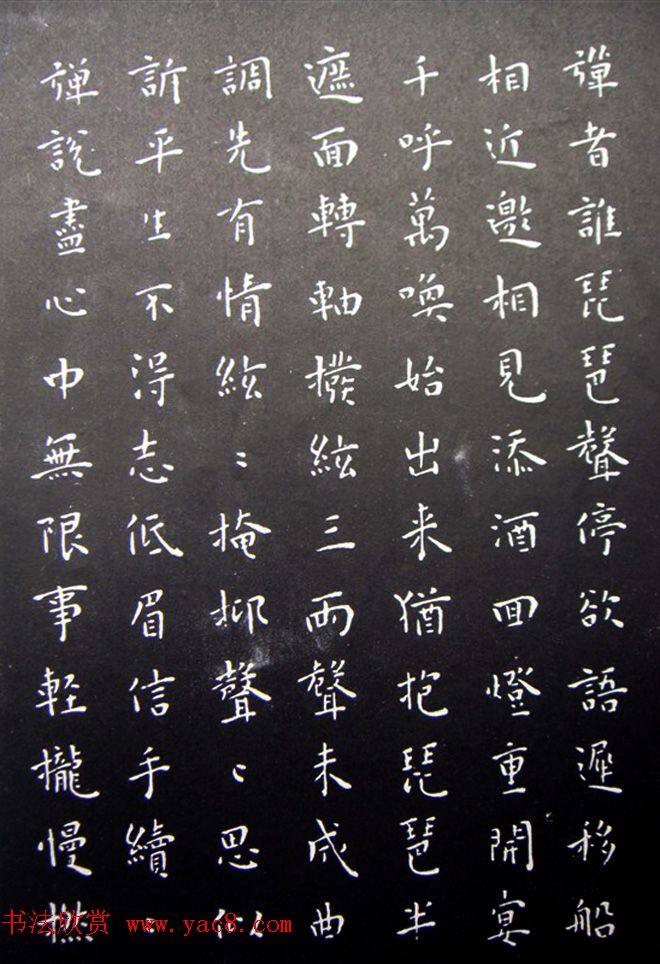 彈者誰琵琶聲停欲語遲移船
相近邀相見添酒回燈重開宴
千呼萬喚始出来猶抱琵琶半
遮面轉軸撥絃三兩聲未成曲
調先有情絃〻掩抑聲〻思似
訴平生不得志低眉信手續〻
彈說盡心中無限事軽攏慢撚
书法欣赏 www.yac8.com